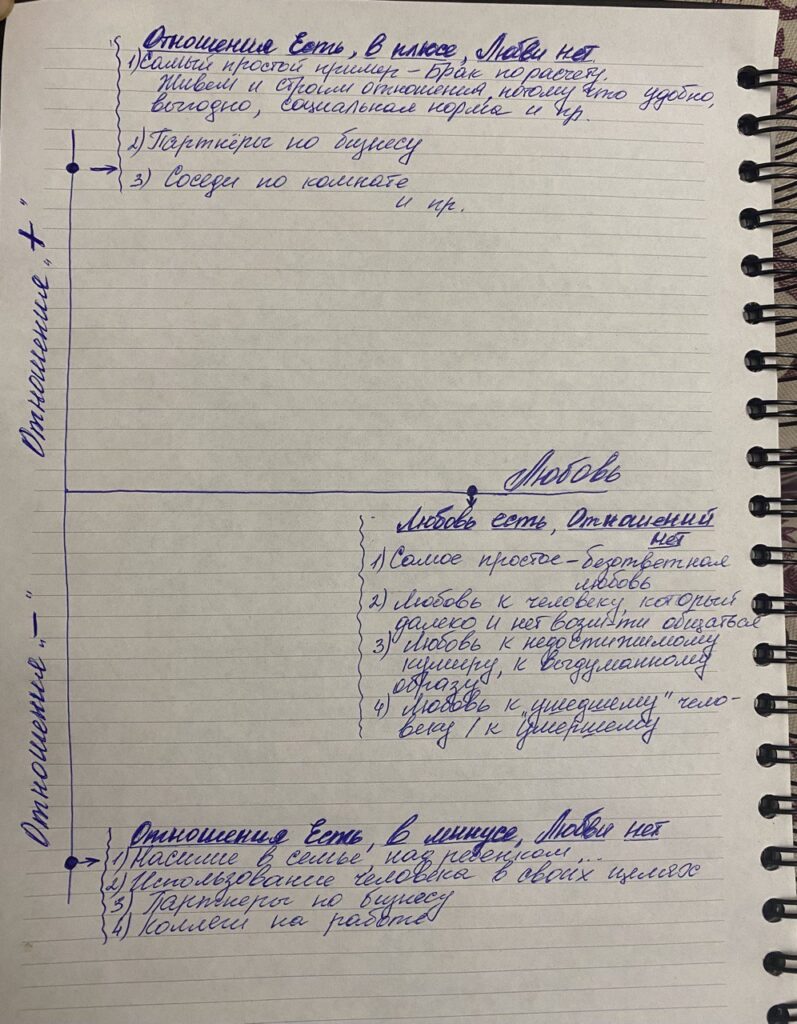 Отношения Есть, в плюсе, Любви нет.
1) Самый простой пример – Брак по расчету.
Живем и строим отношения, потому что удобно,
выгодно, социальная норма и пр.
2) Партнёры по бизнесу
3) Соседи по комнате
и пр.
Отношения „+"
Любовь
Любовь есть, Отношений
нет
1) Самое простое – безответная
любовь
2) Любовь к человеку, который
далеко и нет возм-ти общаться
3) Любовь к недостижимому
кумиру, к выдуманному
образу
4) Любовь к „ушедшему" чело-
веку / к умершему
Отношения „–"
Отношения Есть, в минусе, Любви нет
1) Насилие в семье, над ребенком...
2) Использование человека в своих целях
3) Партнеры по бизнесу
4) Коллеги на работе